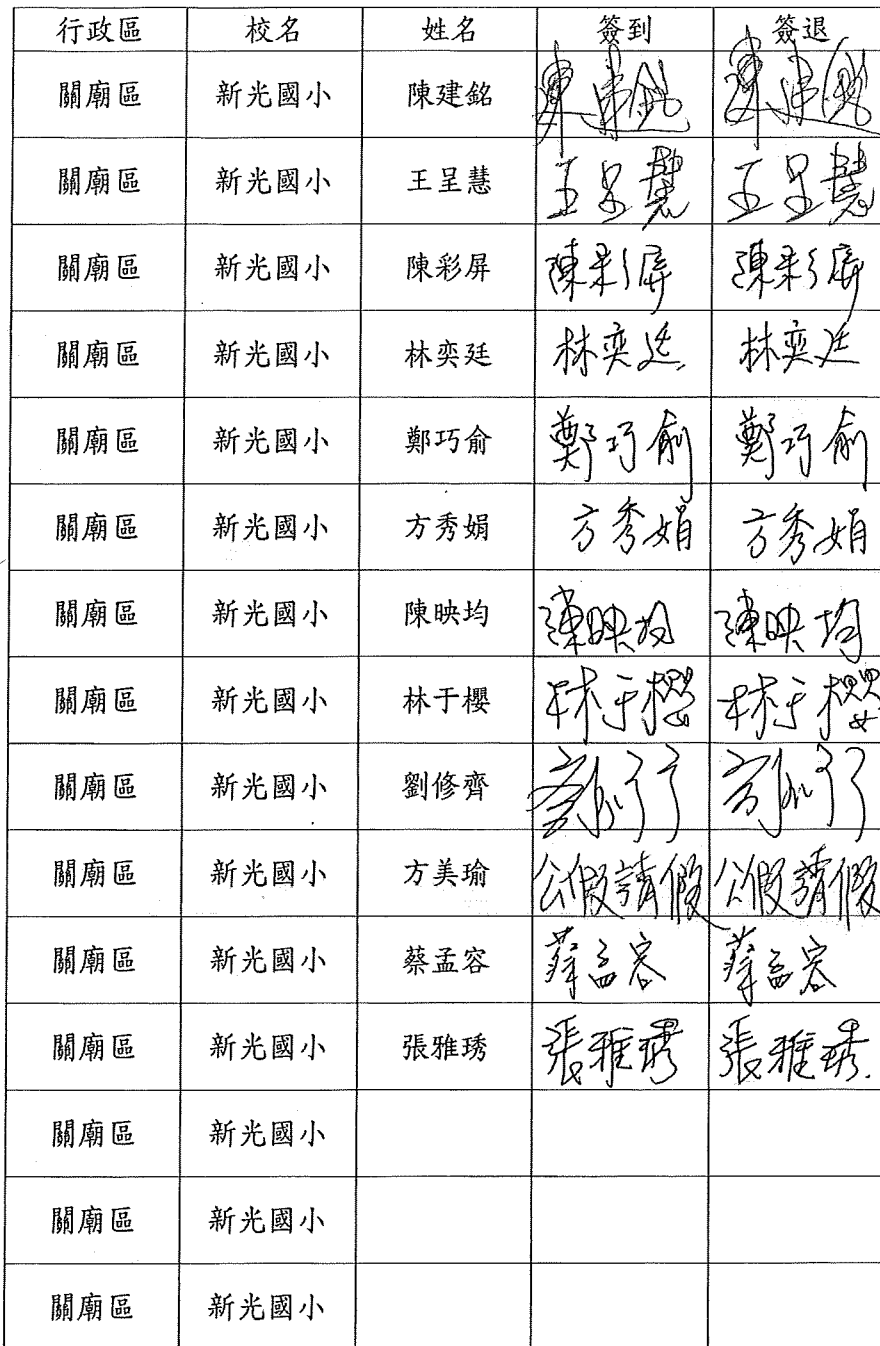 行政區 校名 姓名 簽到 簽退
關廟區 新光國小 陳建銘 陳建銘 陳建銘
關廟區 新光國小 王呈慧 王呈慧 王呈慧
關廟區 新光國小 陳彩屏 陳彩屏 陳彩屏
關廟區 新光國小 林奕廷 林奕廷 林奕廷
關廟區 新光國小 鄭巧俞 鄭巧俞 鄭巧俞
關廟區 新光國小 方秀娟 方秀娟 方秀娟
關廟區 新光國小 陳映均 陳映均 陳映均
關廟區 新光國小 林于櫻 林于櫻 林于櫻
關廟區 新光國小 劉修齊
關廟區 新光國小 方美瑜 公假請假 公假請假
關廟區 新光國小 蔡孟容 蔡孟容 蔡孟容
關廟區 新光國小 張雅琇 張雅琇 張雅琇
關廟區 新光國小
關廟區 新光國小
關廟區 新光國小